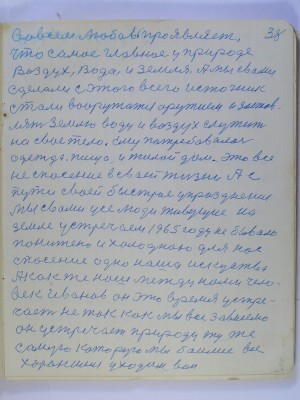 38
Совсем любовь проявляет,
что самое главное у природе
воздух, вода, и земля. А мы с вами
сделали с этого всего источник
стали вооружатся оружием и
лят землю воду и воздух служит
на свое тело. Ему потребовалас
одежда. пища, и жилой дом. Это все
не спасение в своей жизни А с
пути своей быстрае упразднения
мы с вами усе люди живущие на
земле устречаем 1965 году не бывало
понижено и холодною для нас
спасение одно наша искуства
А как же наш между нами чело-
век Иванов он это время устре-
чает не так как мы все зависимо
он устречает природу ту же
самую которую мы боимся ее
хороним и уходим вон